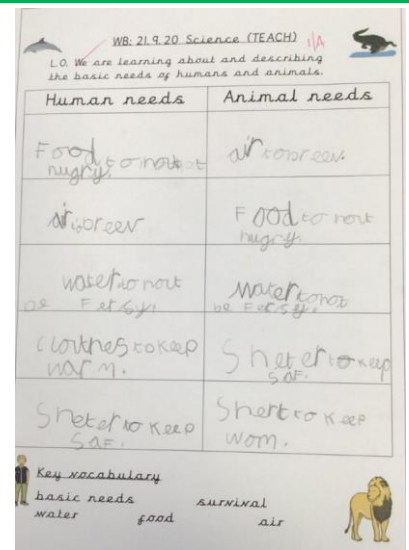 WB: 21.9.20 Science (TEACH) i/A
L.O. We are learning about and describing
the basic needs of humans and animals.
Human needs
Animal needs
Food to
hugry.
air to breev.
air breev
Food to nout
hugry.
water to nout
be Fersty.
water to not
be Fersty.
clouthes to keep
warm.
Sheter to keep
saf.
Sheter to keep
saf.
Shert to keep
wom.
Key vocabulary
basic needs
survival
water
food
air